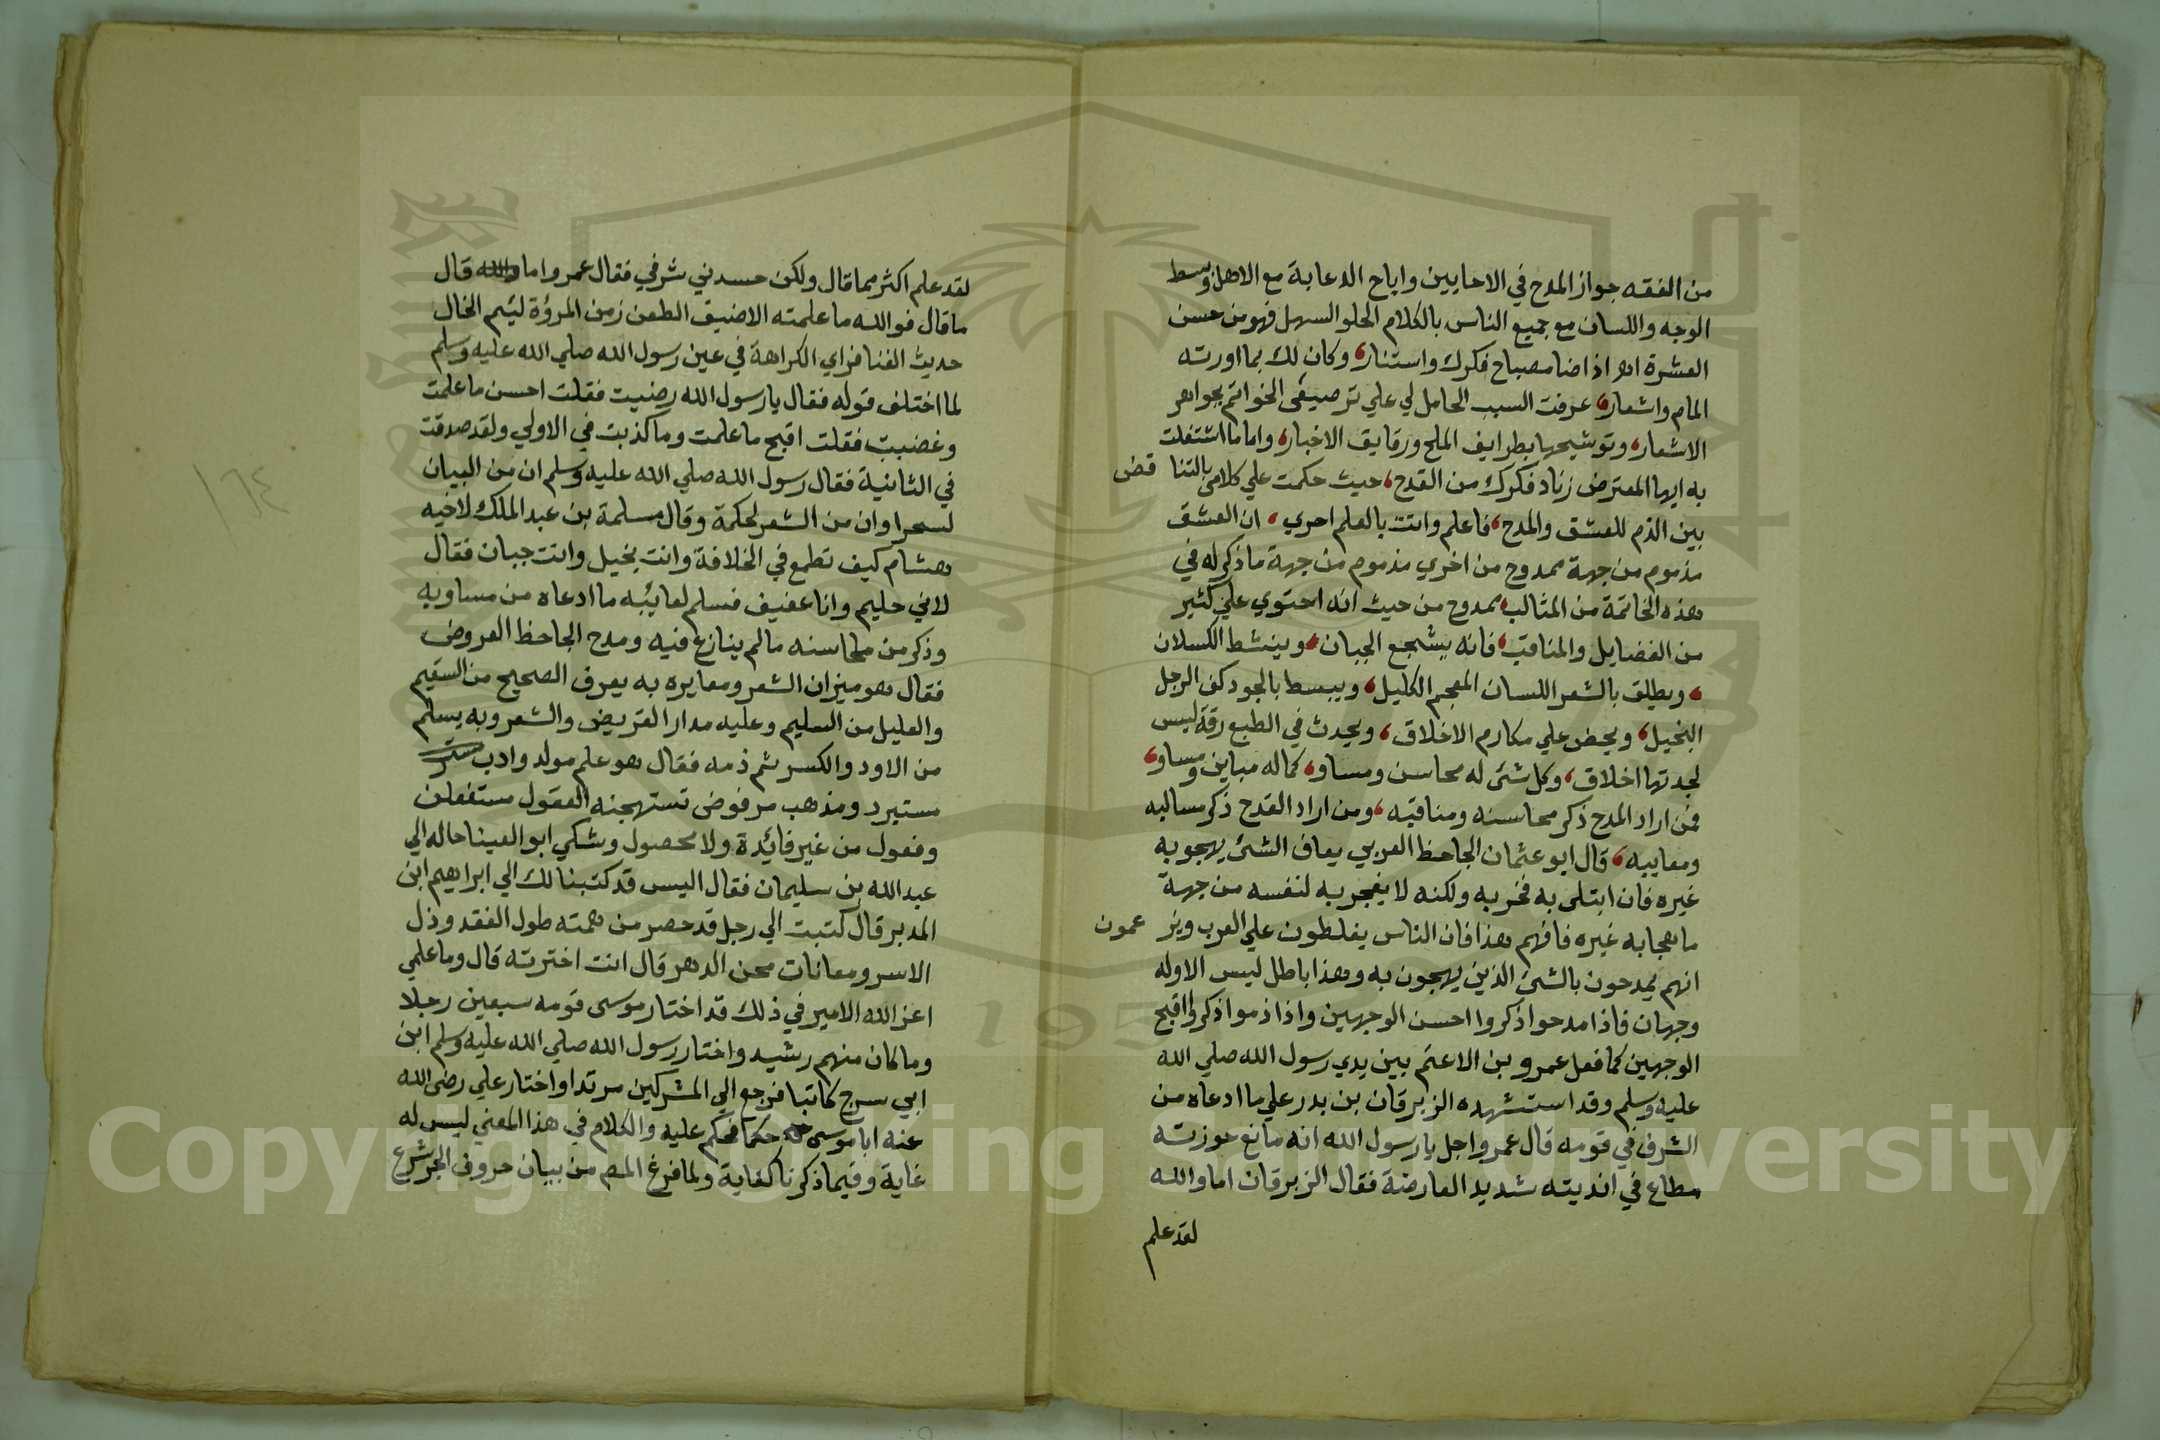 من الفقه جواز المدح في الاحايين واباح الدعابة مع الاهل وبسط
الوجه واللسان مع جميع الناس بالكلام الحلو السهل فهو من حسن
العشرة اه اذا ضا مصباح فكرك واستنار وكان لك بما اورته
المام واشعار عرفت السبب الحامل لي علي ترصيفي الخواتم بجواهر
الاشعار وتوشيحها بطرايف الملح ورقايق الاخبار واما ما اشتغلت
به ايها المعترض زناد فكرك من القدح حيث حكمت علي كلامي بالتنا قض
بين الذم للعشق والمدح فاعلم وانت بالعلم احري ان العشق
مذموم من جهة ممدوح من اخري مذموم من جهة ما ذكر له في
هذه الخاتمة من المثالب ممدوح من حيث انه احتوي علي كثير
من الفضايل والمناقب فانه يشجع الجبان وينشط الكسلان
ويطلق بالشعر اللسان المعجم الكليل ويبسط بالجود كف الرجل
البخيل ويحض علي مكارم الاخلاق ويحدث في الطبع رقة ليس
لجدتها اخلاق وكل شئ له محاسن ومساو كما له مباين ومساو
فمن اراد المدح ذكر محاسنه ومناقبه ومن اراد القدح ذكر مسالبه
ومعايبه قال ابو عثمان الجاحظ العربي يعاف الشئ يهجو به
غيره فان ابتلي به فخر به ولكنه لا يفجر به لنفسه من جهة
ما هجا به غيره فافهم هذا فان الناس يغلطون علي العرب ويز عمون
انهم يمدحون بالشئ الذين يهجون به وهذا باطل ليس الا وله
وجهان فاذا مدحوا ذكروا احسن الوجهين واذا ذموا ذكروا اقبح
الوجهين كما فعل عمرو بن الاعتم بين يدي رسول الله صلي الله
عليه وسلم وقد استشهده الزبرقان بن بدر علي ما ادعاه من
الشرف في قومه قال عمرو اجل يا رسول الله انه مانع حوزته
مطاع في انديته شديد العارضة فقال الزبرقان اما والله
لقد علم
لقد علم اكثر مما قال ولكن حسدني شرفي فقال عمرو اما والله قال
ما قال فوالله ما علمته الا ضيق الطعن زمن المروة لئيم الخال
حديث الغنا فراي الكراهة في عين رسول الله صلي الله عليه وسلم
لما اختلف قوله فقال يا رسول الله رضيت فقلت احسن ما علمت
وغضبت فقلت اقبح ما علمت وما كذبت في الاولي ولقد صدقت
في الثانية فقال رسول الله صلي الله عليه وسلم ان من البيان
١٦٤
لسحرا وان من الشعر لحكمة وقال مسلمة بن عبد الملك لاخيه
هشام كيف تطمع في الخلافة وانت بخيل وانت جبان فقال
لاني حليم وانا عفيف فسلم لعائبه ما ادعاه من مساويه
وذكر من محاسنه ما لم ينازع فيه ومدح الجاحظ العروض
فقال هو ميزان الشعر ومعايره به يعرف الصحيح من السقيم
والعليل من السليم وعليه مدار القريض والشعر وبه يسلم
من الاود والكسر ثم ذمه فقال هو علم مولد وادب
مستبرد ومذهب مرفوض تستهجنه العقول مستفعلن
وفعول من غير فائدة ولا محصول وشكي ابو العينا حاله الي
عبد الله بن سليمان فقال اليس قد كتبنا لك الي ابراهيم ابن
المدبر قال كتبت الي رجل قد حصر من همته طول الفقد وذل
الاسر ومعانات محن الدهر قال انت اخترته قال وما علمي
اعز الله الامير في ذلك قد اختار موسى قومه سبعين رجلا
وما كان منهم رشيد واختار رسول الله صلي الله عليه وسلم ابن
ابي سرح كاتبا فرجع الي المشركين مرتدا واختار علي رضى الله
عنه ابا موسى حكما فحكم عليه والكلام في هذا المعني ليس له
غاية وفيما ذكرنا كفاية ولما فرغ المص من بيان حروف الجر شرع